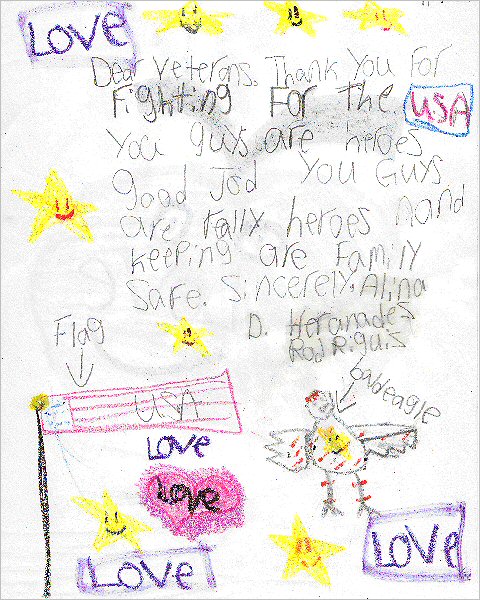 LOVE
Dear Veterans. Thank You For
Fighting For The USA
You guys are heroes
good Jod You Guys
are rally heroes nand
keeping are Family
Safe. Sincerely, Alina
D. Heranades
Rod Riguis
Flag
baldeagle
USA
Love
Love
Love
LOVE